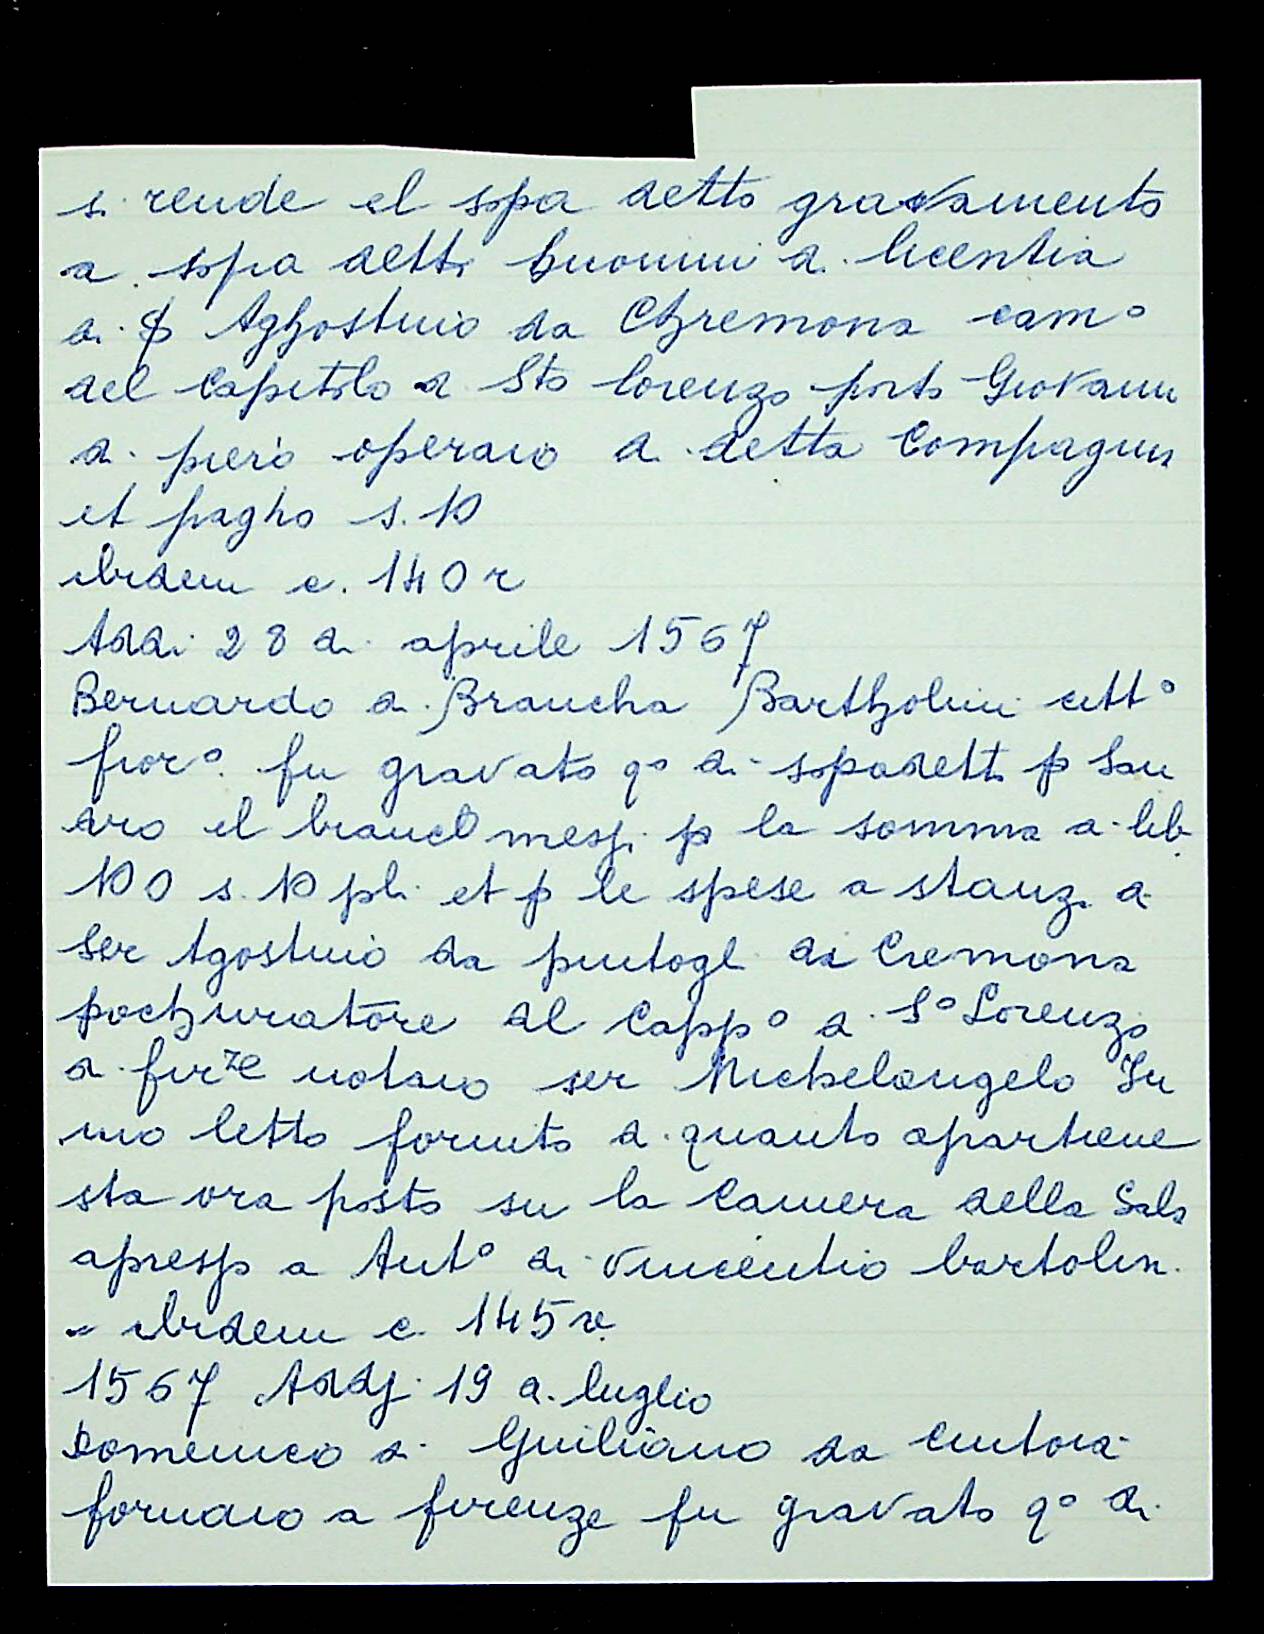 si rende el sopa detto gravamento
a sopa detti huomini di licentia
di ꝑ Aghostino da Chremona cam°
del Capitolo di Sto Lorenzo portò Giovanni
di piero operaio di detta Compagnia
et pagho s. 10
ibidem c. 140 r
Addi 28 di aprile 1567
Bernardo di Brancha Bartholini citt°
fior° fu gravato q° di sopadetti ꝑ San
dro el branch mess. ꝑ la somma di lib
100 s. 10 pli et ꝑ le spese a stanz. di
Ser Agostino da puntogl di Cremona
pochuratore al Capp° di S° Lorenzo
di firze notaio ser Michelangelo In
uno letto fornito di quanto apartiene
sta ora posto su la Camera della Sala
apresso a Ant° di Vincentio bartolin.
- ibidem c. 145 r.
1567 Addj 19 di luglio
Domenico di Guiliano da cintoia
fornaio a firenze fu gravato q° di